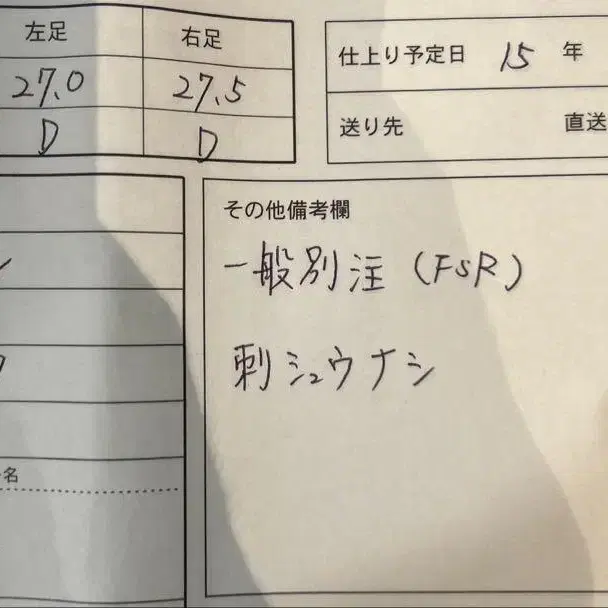 左足 右足
27.0 27.5
D D
仕上り予定日 15 年
送り先 直送
その他備考欄
一般別注 (FSR)
刺シュウナシ
名